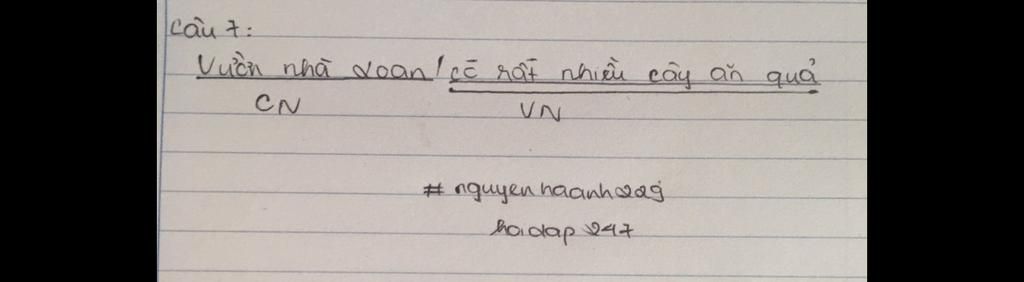 Câu 7:
Vườn nhà Loan / có rất nhiều cây ăn quả
CN VN
# nguyenhaanh229
hoidap 247